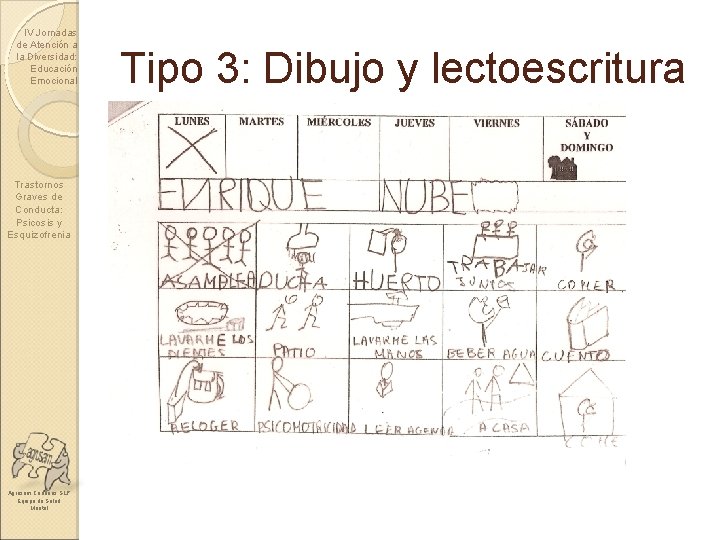 IV Jornadas
de Atención a
la Diversidad:
Educación
Emocional
Tipo 3: Dibujo y lectoescritura
Trastornos
Graves de
Conducta:
Psicosis y
Esquizofrenia
LUNES MARTES MIÉRCOLES JUEVES VIERNES SÁBADO
Y
DOMINGO
ENRIQUE NUBE
ASAMBLEA DUCHA HUERTO TRABAJAR
JUNTOS COMER
LAVARME LOS
DIENTES PATIO LAVARME LAS
MANOS BEBER AGUA CUENTO
RELOGER PSICOMOTRICIDAD LEER AGENDA A CASA
agrisam
Equipo de Salud
Mental